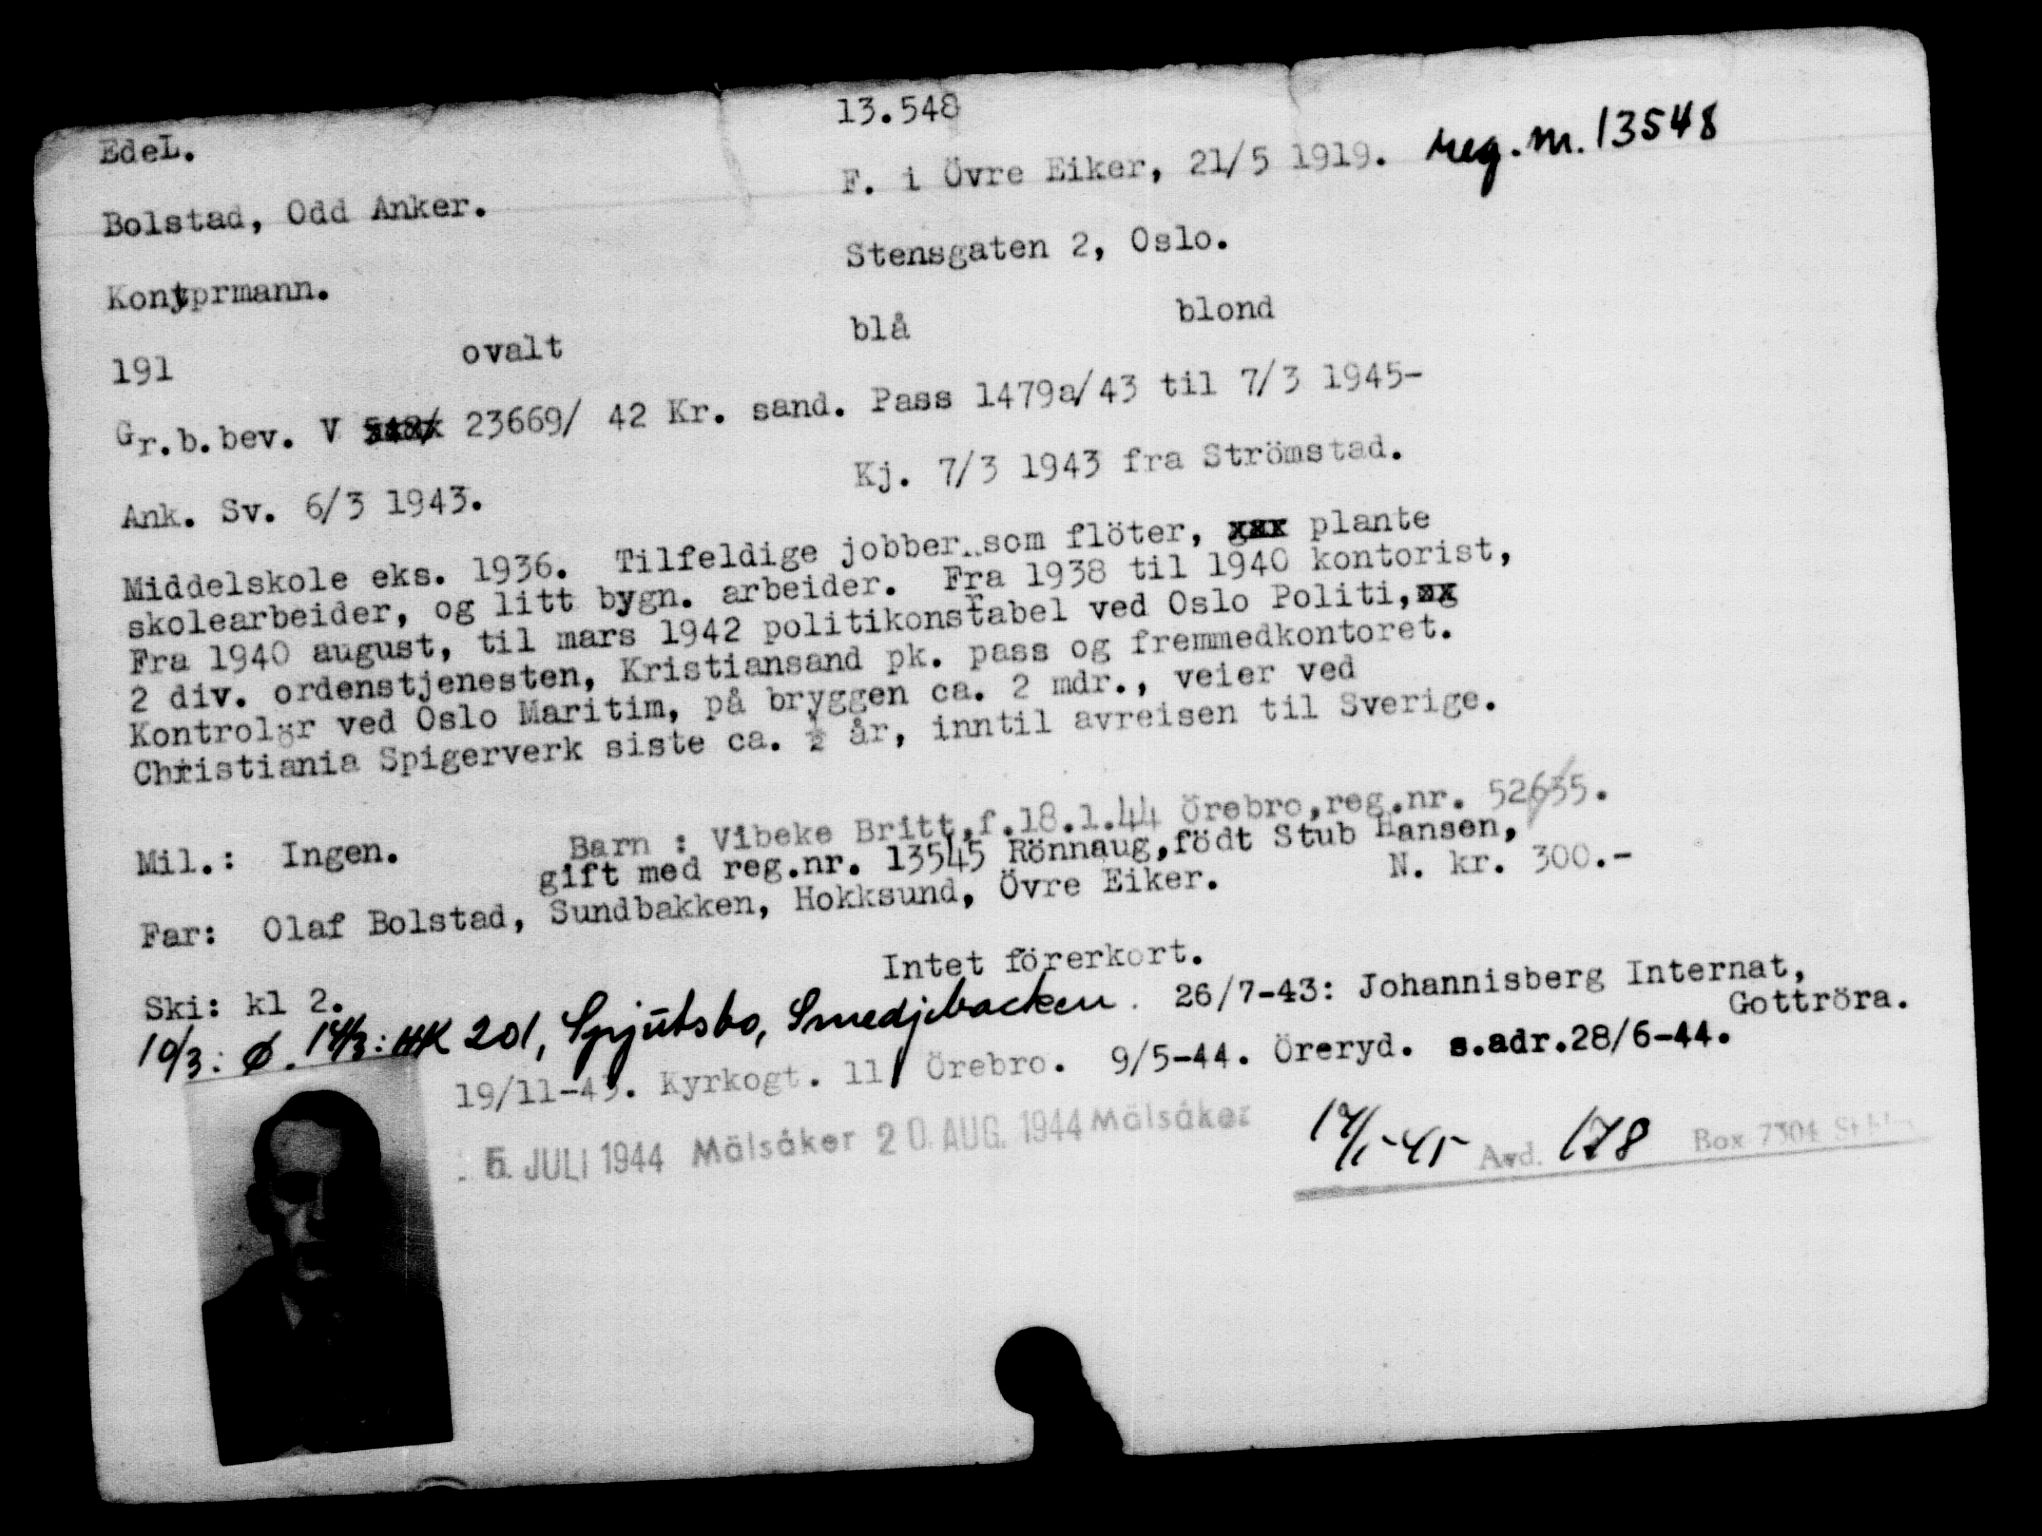 13.548
EdeL.
F. i Övre Eiker, 21/5 1919. reg.nr. 13548
Bolstad, Odd Anker.
Stensgaten 2, Oslo.
Kontprmann.
191 ovalt blå blond
Gr.b.bev. V 23669/ 42 Kr. sand. Pass 1479a/43 til 7/3 1945-
Ank. Sv. 6/3 1943. Kj. 7/3 1943 fra Strömstad.
Middelskole eks. 1936. Tilfeldige jobber som flöter, plante
skolearbeider, og litt bygn. arbeider. Fra 1938 til 1940 kontorist,
Fra 1940 august, til mars 1942 politikonstabel ved Oslo Politi,
2 div. ordenstjenesten, Kristiansand pk. pass og fremmedkontoret.
Kontrolør ved Oslo Maritim, på bryggen ca. 2 mdr., veier ved
Christiania Spigerverk siste ca. ½ år, inntil avreisen til Sverige.
Barn : Vibeke Britt,f.18.1.44 Örebro,reg.nr. 52635.
Mil.: Ingen. gift med reg.nr. 13545 Rönnaug,födt Stub Hansen,
Far: Olaf Bolstad, Sundbakken, Hokksund, Övre Eiker. N. kr. 300.-
Intet förerkort.
Ski: kl 2.
10/3: Ø. 14/3: HK 201, Spjutsbo, Smedjebacken. 26/7-43: Johannisberg Internat,
Gottröra.
19/11-43. Kyrkogt. 11, Örebro. 9/5-44. Öreryd. s.adr.28/6-44.
5. JULI 1944 Mälsåker 20. AUG. 1944 Mälsåker
Avd. 178 Box 7304